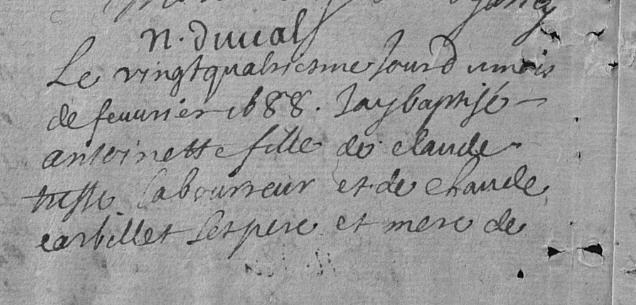 n. duual
Le vingtquatriesme Jour du mois
de feuurier 1688. Jay baptisé
antoinette fille de claude
laboureur et de claude
carbillet Ses pere et mere de